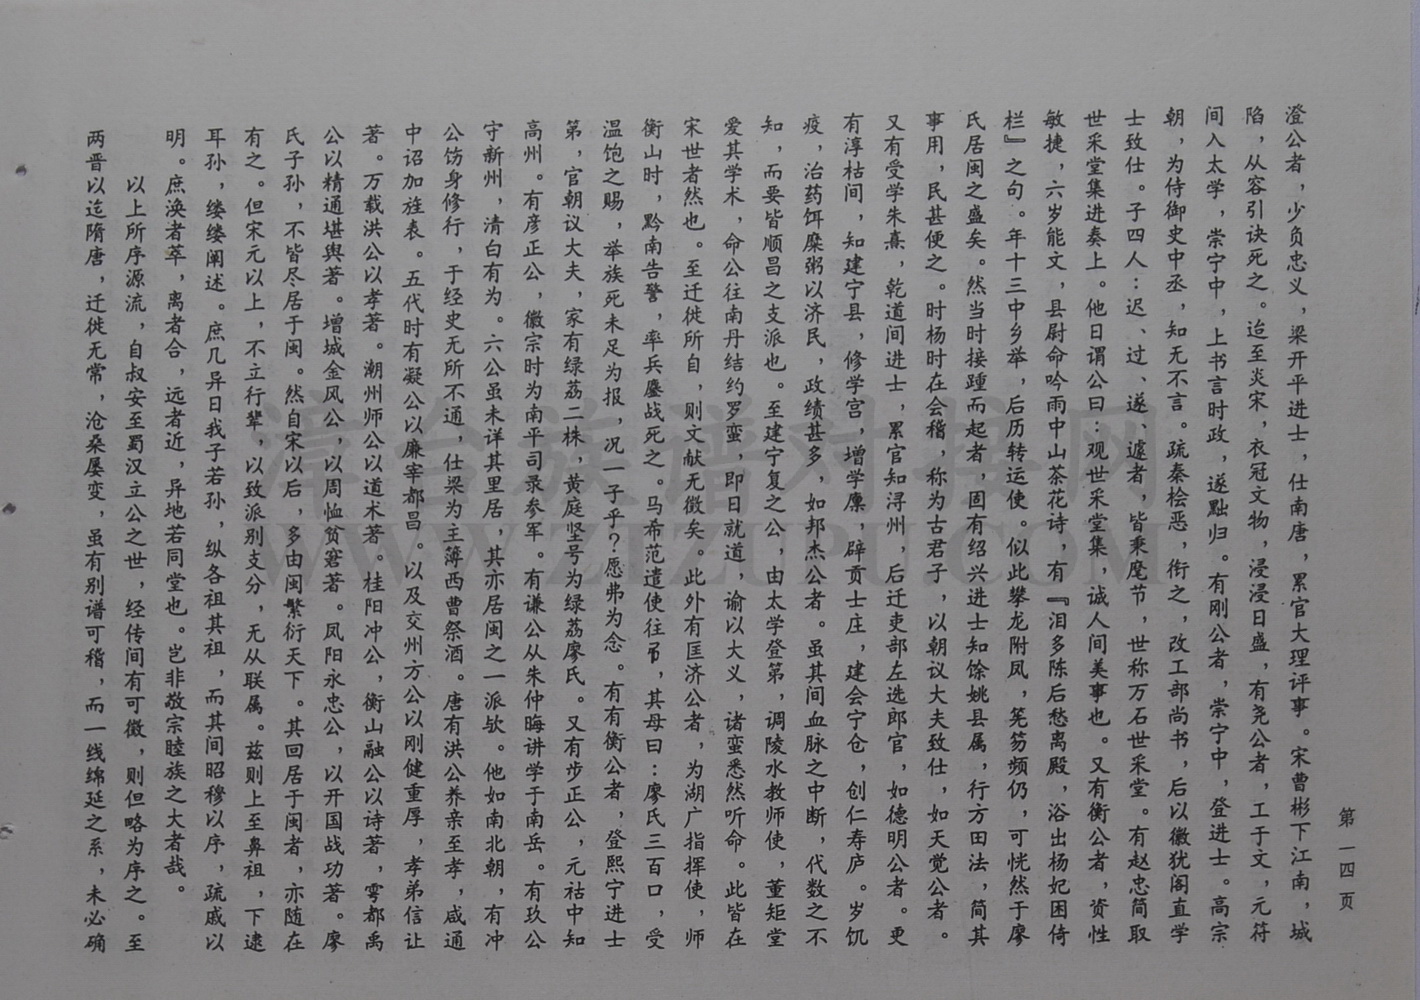 第一四页
澄公者，少负忠义，梁开平进士，仕南唐，累官大理评事。宋曹彬下江南，城
陷，从容引诀死之。迨至炎宋，衣冠文物，浸浸日盛，有尧公者，工于文，元符
间入太学，崇宁中，上书言时政，遂黜归。有刚公者，崇宁中，登进士。高宗
朝，为侍御史中丞，知无不言。疏秦桧恶，衔之，改工部尚书，后以徽犹阁直学
士致仕。子四人：迟、过、遂、遽者，皆秉麾节，世称万石世采堂。有赵忠简取
世采堂集进奏上。他日谓公曰：观世采堂集，诚人间美事也。又有衡公者，资性
敏捷，六岁能文，县尉命吟雨中山茶花诗，有『泪多陈后愁离殿，浴出杨妃困倚
栏』之句。年十三中乡举，后历转运使。似此攀龙附凤，笼笏频仍，可恍然于廖
氏居闽之盛矣。然当时接踵而起者，固有绍兴进士知馀姚县属，行方田法，简其
事用，民甚便之。时杨时在会稽，称为古君子，以朝议大夫致仕，如天觉公者。
又有受学朱熹，乾道间进士，累官知浔州，后迁吏部左选郎官，如德明公者。更
有淳祐间，知建宁县，修学宫，增学廪，辟贡士庄，建会宁仓，创仁寿庐。岁饥
疫，治药饵糜粥以济民，政绩甚多，如邦杰公者。虽其间血脉之中断，代数之不
知，而要皆顺昌之支派也。至建宁复之公，由太学登第，调陵水教师使，董矩堂
爱其学术，命公往南丹结约罗蛮，即日就道，谕以大义，诸蛮悉然听命。此皆在
宋世者然也。至迁徙所自，则文献无徵矣。此外有匡济公者，为湖广指挥使，师
衡山时，黔南告警，率兵鏖战死之。马希范遣使往吊，其母曰：廖氏三百口，受
温饱之赐，举族死未足为报，况一子乎？愿弗为念。有有衡公者，登熙宁进士
第，官朝议大夫，家有绿荔二株，黄庭坚号为绿荔廖氏。又有步正公，元祜中知
高州。有彦正公，徽宗时为南平司录参军。有谦公从朱仲晦讲学于南岳。有玖公
守新州，清白有为。六公虽未详其里居，其亦居闽之一派欤。他如南北朝，有冲
公饬身修行，于经史无所不通，仕梁为主簿西曹祭酒。唐有洪公养亲至孝，咸通
中诏加旌表。五代时有凝公以廉宰都昌。以及交州方公以刚健重厚，孝弟信让
著。万载洪公以孝著。潮州师公以道术著。桂阳冲公，衡山融公以诗著，雩都禹
公以精通堪舆著。增城金风公，以周恤贫窘著。凤阳永忠公，以开国战功著。廖
氏子孙，不皆尽居于闽。然自宋以后，多由闽繁衍天下。其回居于闽者，亦随在
有之。但宋元以上，不立行辈，以致派别支分，无从联属。兹则上至鼻祖，下逮
耳孙，缕缕阐述。庶几异日我子若孙，纵各祖其祖，而其间昭穆以序，疏戚以
明。庶涣者萃，离者合，远者近，异地若同堂也。岂非敬宗睦族之大者哉。
以上所序源流，自叔安至蜀汉立公之世，经传间有可徵，则但略为序之。至
两晋以迄隋唐，迁徙无常，沧桑屡变，虽有别谱可稽，而一线绵延之系，未必确
漳台族谱对接网
WWW.ZIZUPU.COM